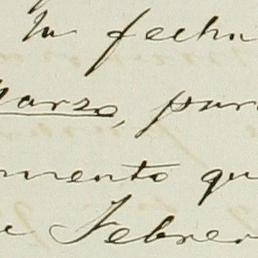 tu fecha
Marzo, par
mento qu
e Febrer